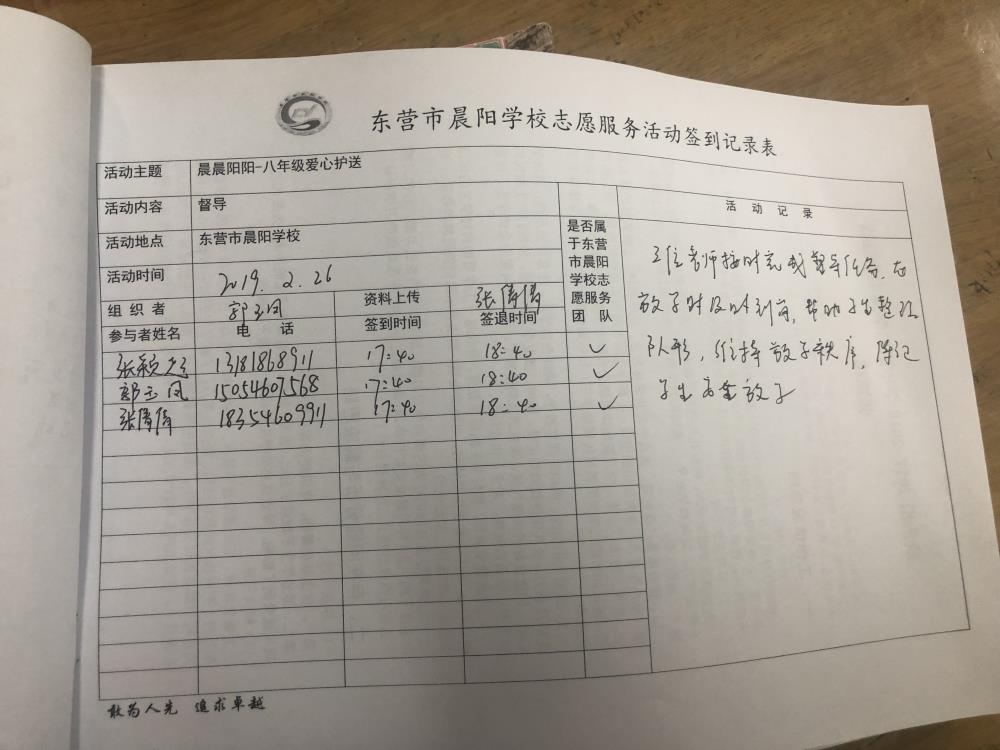 东营市晨阳学校志愿服务活动签到记录表
活动主题 晨晨阳阳-八年级爱心护送
活动内容 督导
活动地点 东营市晨阳学校
活动时间 2019. 2. 26
组织者 郭玉凤 资料上传 张倩倩
参与者姓名 电话 签到时间 签退时间
是否属
于东营
市晨阳
学校志
愿服务
团队
张颖 13181868911 17:40 18:40 ✓
郭玉凤 15054607568 17:40 18:40 ✓
张倩倩 18354609911 17:40 18:40 ✓
活动记录
三位老师按时完成督导任务,在
放学时及时到前,帮助学生整理
队形,维持放学秩序,
学生安全放学
敢为人先 追求卓越